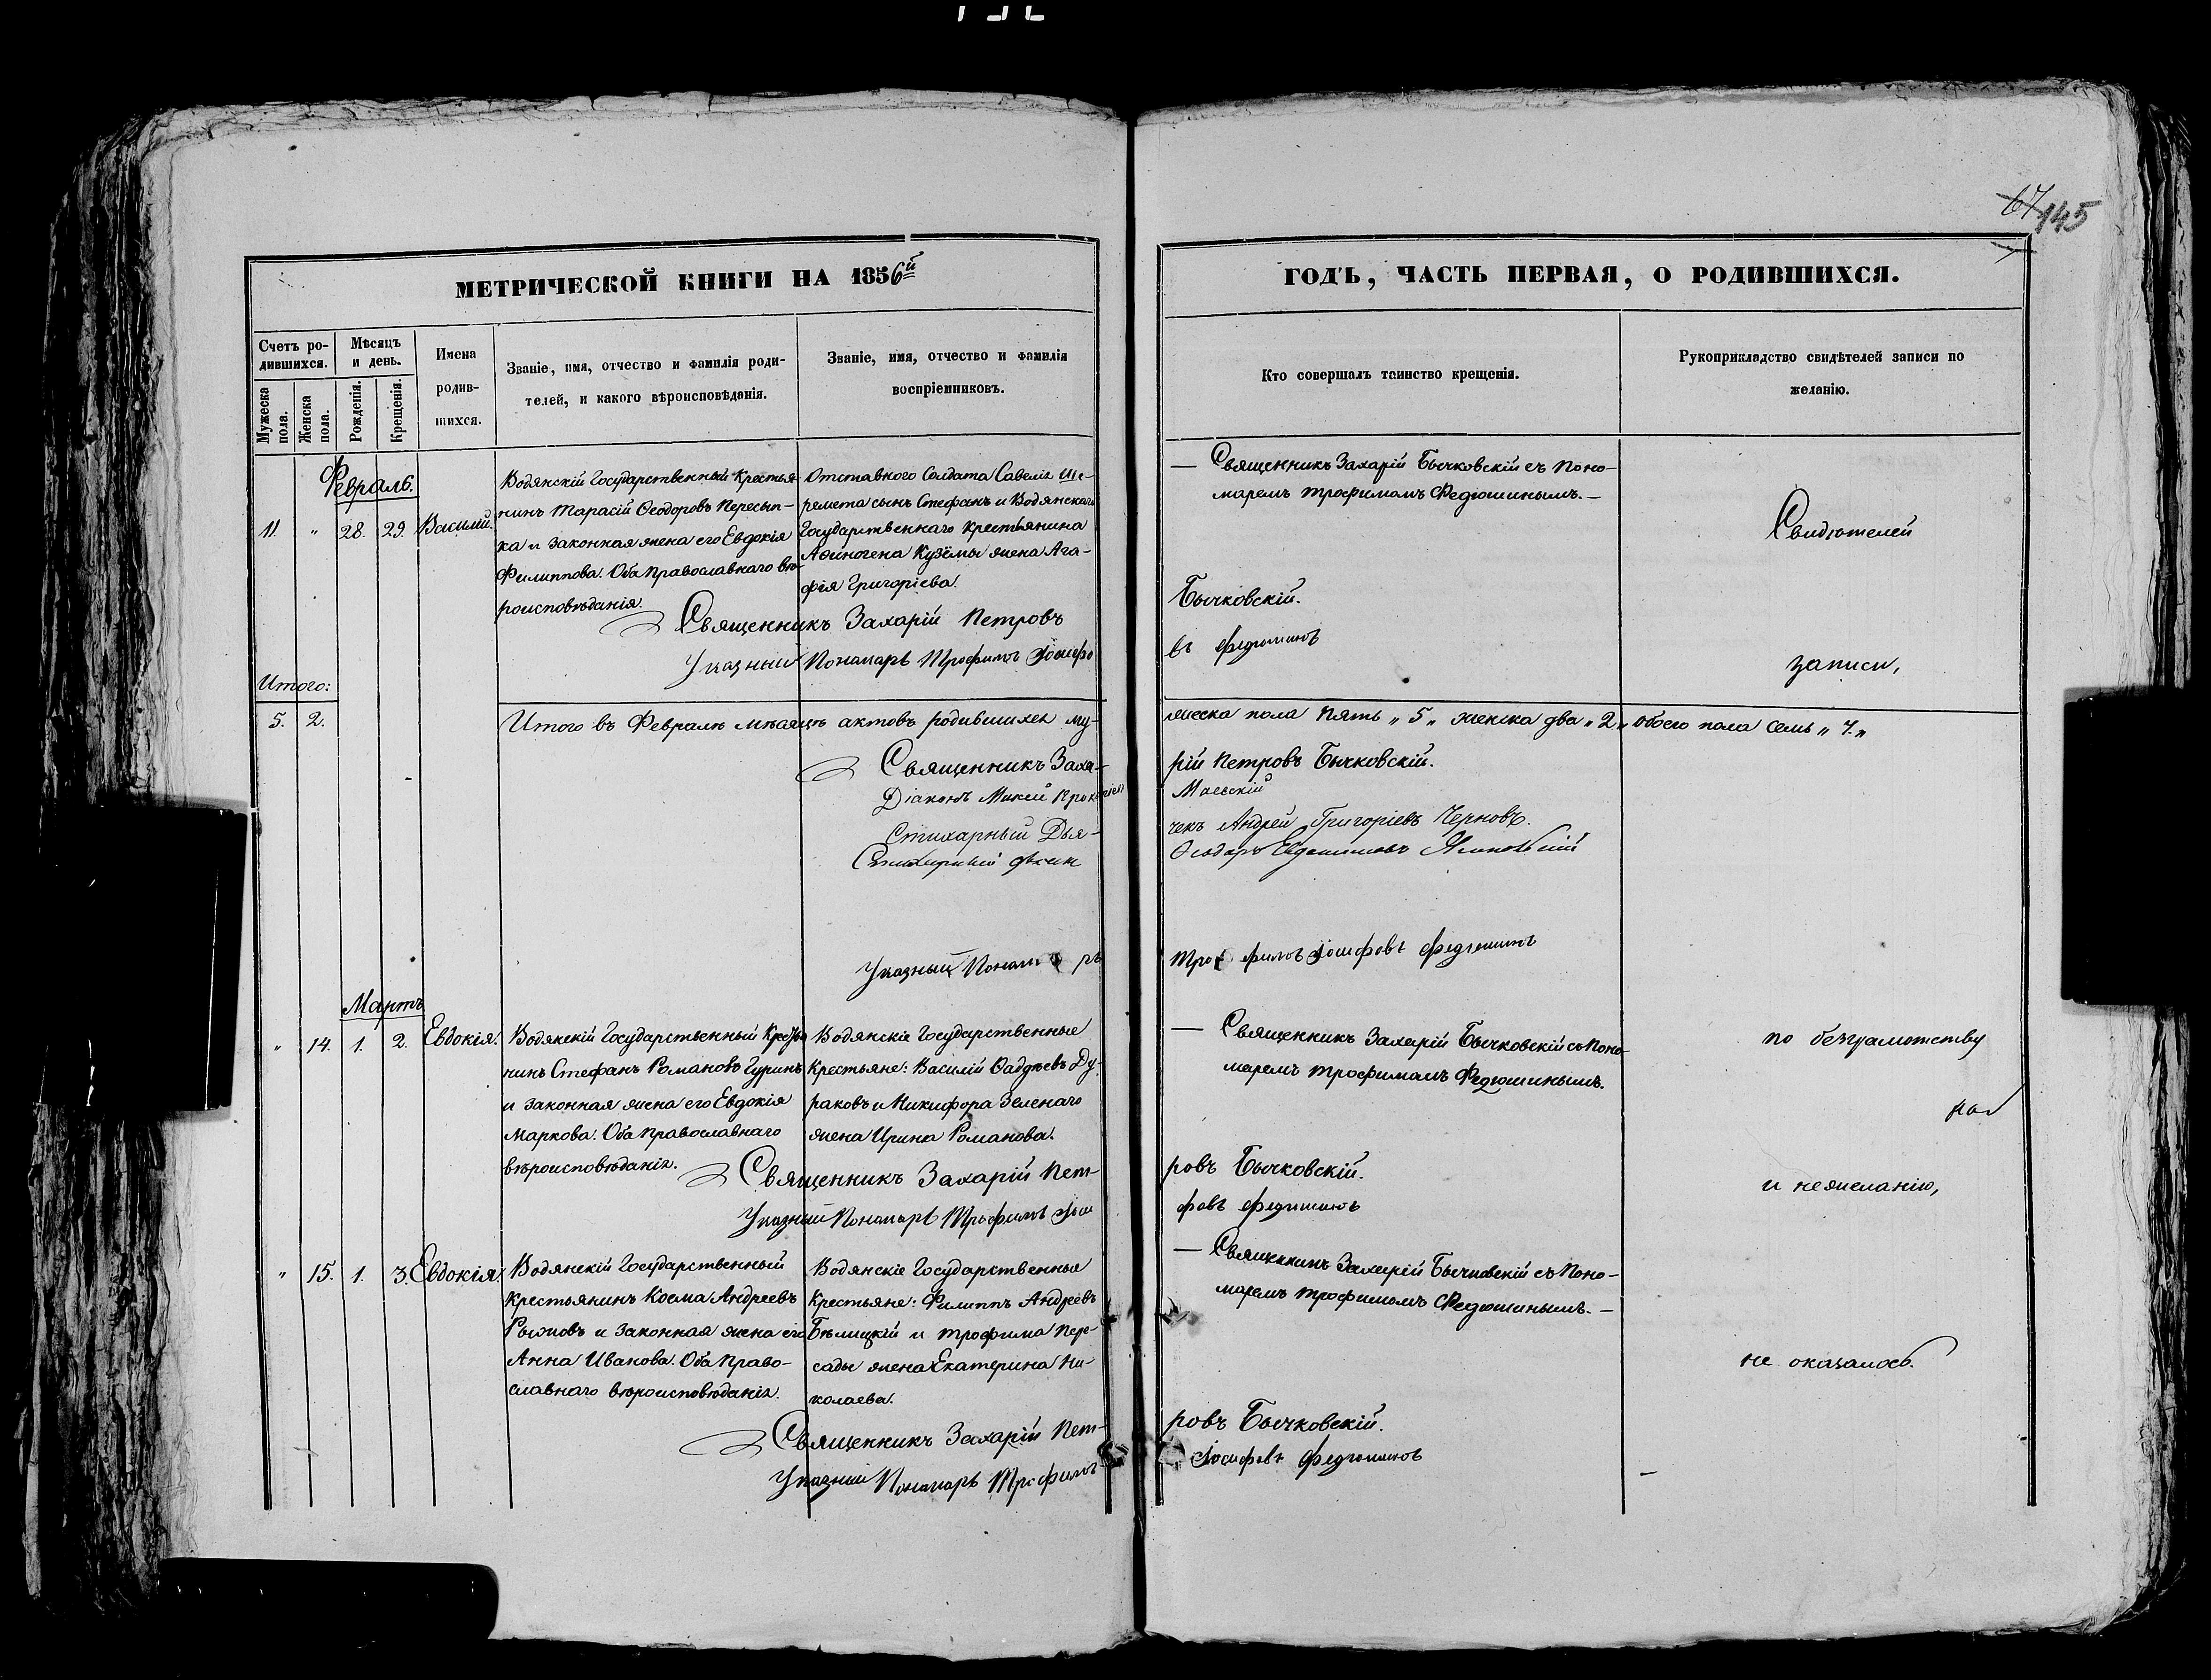 67 145
МЕТРИЧЕСКОЙ КНИГИ НА 1856й
ГОДЪ, ЧАСТЬ ПЕРВАЯ, О РОДИВШИХСЯ.
Счетъ ро-
дившихся.
Мужеска
пола.
Женска
пола.
Мѣсяцъ
и день.
Рожденія.
Крещенія.
Имена
родив-
шихся.
Званіе, имя, отчество и фамилія роди-
телей, и какого вѣроисповѣданія.
Званіе, имя, отчество и фамилія
воспріемниковъ.
Кто совершалъ таинство крещенія.
Рукоприкладство свидѣтелей записи по
желанію.
Февраль.
11. „ 28. 29. Василій.
Водянскій Государственный Крестья
нинъ Тарасій Ѳеодоровъ Пересып-
ка и законная жена его Евдокія
Филиппова. Оба Православнаго вѣ-
роисповѣданія.
Отставного Солдата Савелія Ше-
ремета сынъ Стефанъ и Водянскаго
Государственнаго крестьянина
Аѳиногена Кузёмы жена Ага-
фія Григоріева.
— Священникъ Захарій Бычковскій съ Поно-
маремъ Трофимомъ Федюшинымъ.—
Свидѣтелей
Священникъ Захарій Петровъ Бычковскій.
Указный Пономарь Трофимъ Іосифо въ Федюшинъ
записи,
Итого:
5. 2.
Итого въ Февралѣ мѣсяцѣ актовъ родившихся му- жеска пола пять „ 5 „ женска два „ 2 „ обоего пола семь „ 7. „
Священникъ Заха- рій Петровъ Бычковскій.
Діаконъ Мокей Прокопіев Маевскій
Стихарный Дья- чекъ Андрей Григоріевъ Черновъ.
Стихарный
Указный Пономарь Трофимъ Іосифовъ Федюшинъ
Мартъ
„ 14. 1. 2. Евдокія.
Водянскій Государственный Кресть
нинъ Стефанъ Романовъ Гуринъ
и законная жена его Евдокія
Маркова. Оба Православнаго
вѣроисповѣданія.
Водянскіе Государственные
Крестьяне: Василій Ѳаддѣевъ Ду-
раковъ и Никифора Зеленаго
жена Ирина Романова.
— Священникъ Захарій Бычковскій съ Поно-
маремъ Трофимомъ Федюшинымъ.
по безграмотству
Священникъ Захарій Пет- ровъ Бычковскій.
Указный Пономарь Трофимъ Іоси фовъ Федюшинъ
и нежеланію,
„ 15. 1. 3. Евдокія.
Водянскій Государственный
крестьянинъ Косма Андреевъ
Рыжовъ и законная жена его
Анна Иванова. Оба Право-
славнаго вѣроисповѣданія.
Водянскіе Государственные
Крестьяне: Филиппъ Андреевъ
Бѣлицкій и Трофима Пере-
сады жена Екатерина Ни-
колаева.
— Священникъ Захарій Бычковскій съ Поно-
маремъ Трофимомъ Федюшинымъ.—
не оказалось.
Священникъ Захарій Пет- ровъ Бычковскій.
Указный Пономарь Трофимъ Іосифовъ Федюшинъ